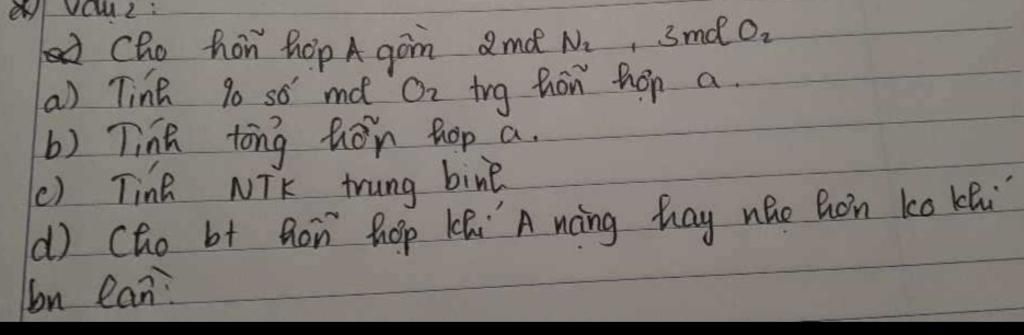 Câu 2:
Cho hỗn hợp A gồm 2mol N₂, 3mol O₂
a) Tính % số mol O₂ trg hỗn hợp a.
b) Tính tổng hỗn hợp a.
c) Tính NTK trung bình
d) Cho bt hỗn hợp khí A nặng hay nhẹ hơn ko khí
bn lần?